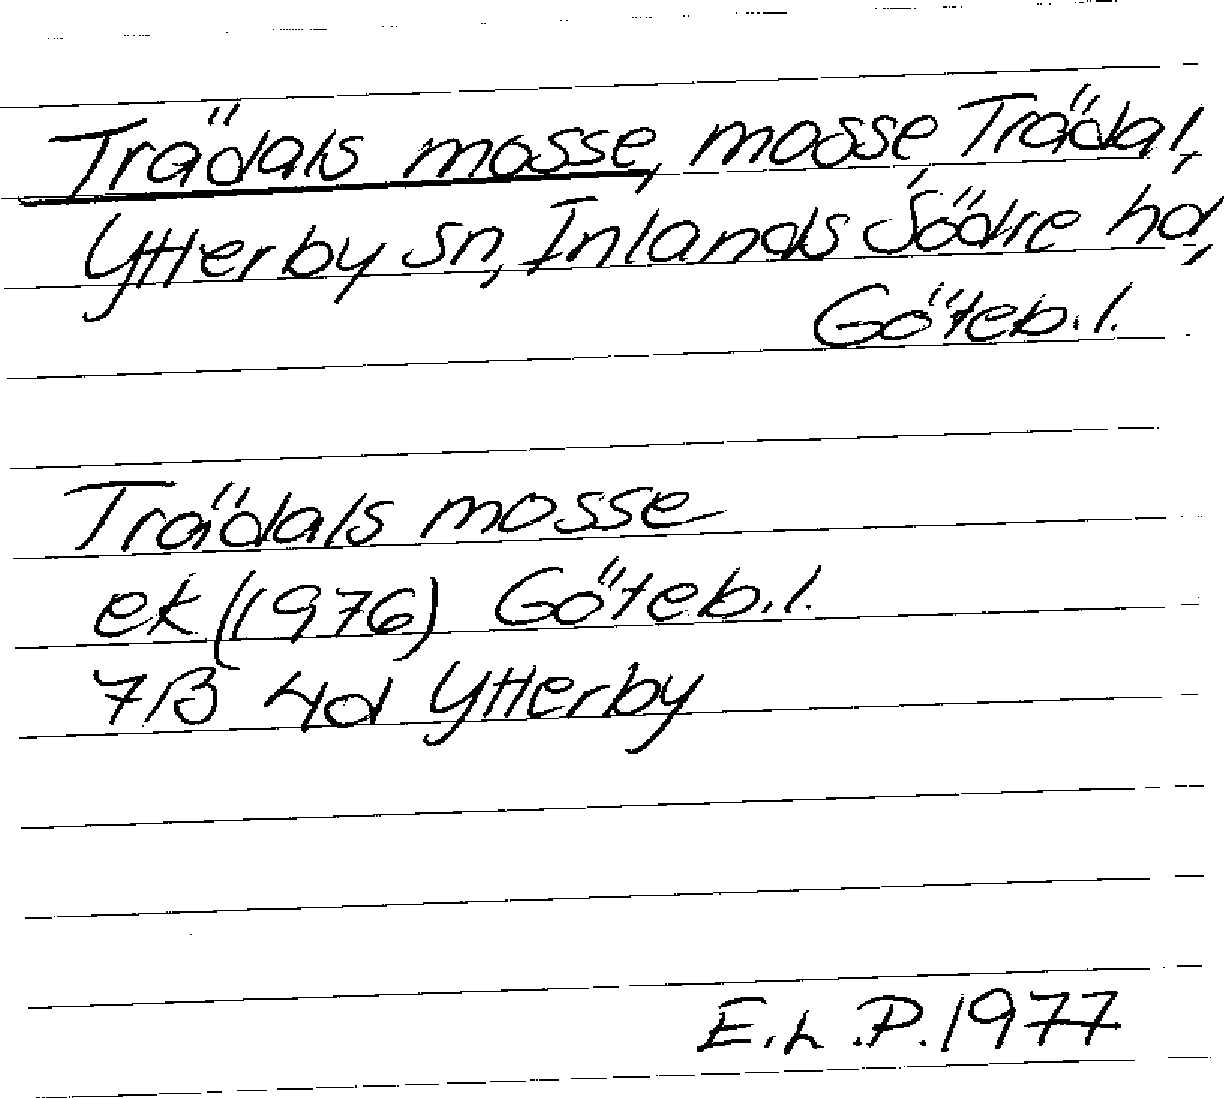 Trädals mosse, mosse Trädal,
Ytterby sn, Inlands Södre hd,
Göteb.l.
Trädals mosse
ek (1976) Göteb.l.
7B 4d Ytterby
E.L.P. 1977